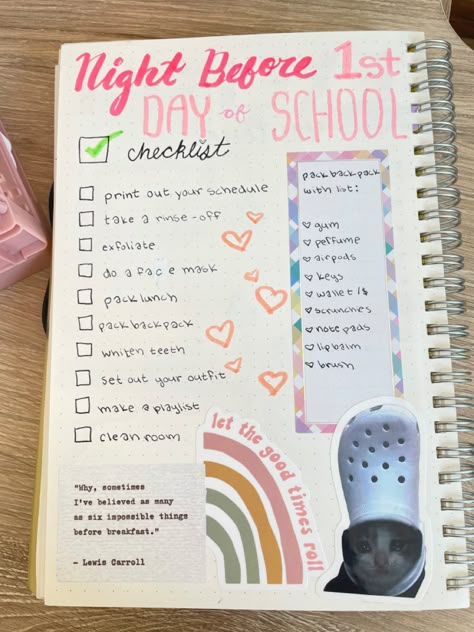 Night Before 1st
DAY of SCHOOL
checklist
print out your schedule
take a rinse-off
exfoliate
do a face mask
pack lunch
pack backpack
whiten teeth
set out your outfit
make a playlist
clean room
pack backpack
with list:
gum
perfume
airpods
keys
wallet/$
scrunchies
notepads
lip balm
brush
let the good times roll
"Why, sometimes
I've believed as many
as six impossible things
before breakfast."
- Lewis Carroll